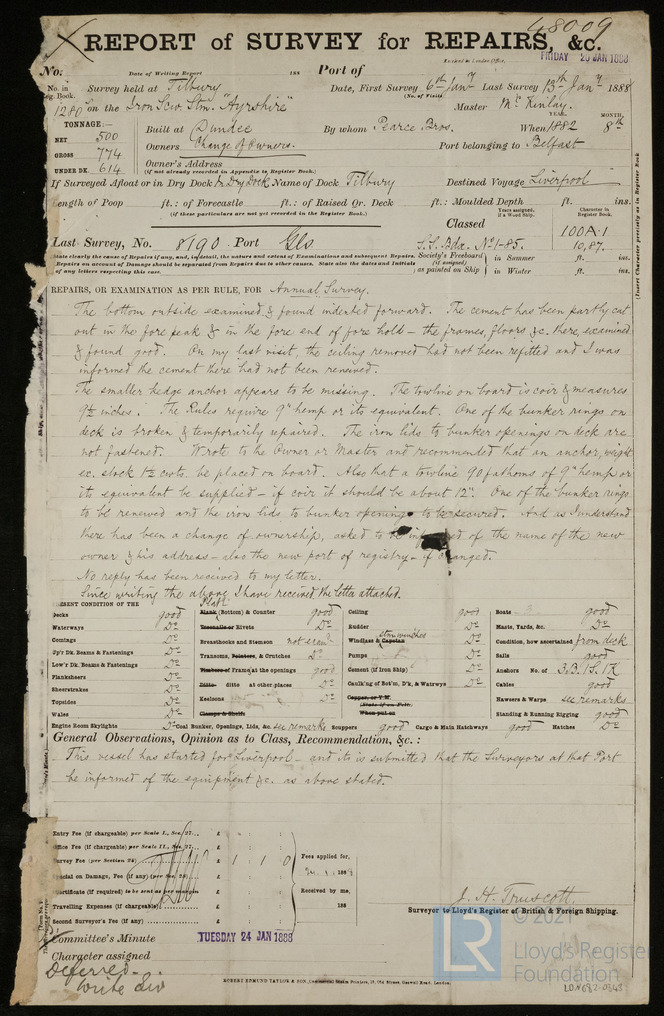 48009
REPORT of SURVEY for REPAIRS, &c.
FRIDAY 20 JAN 1888
Received at London Office,
No. Date of Writing Report 188 Port of
No. in Reg. Book. Survey held at Tilbury Date, First Survey 6th Jany Last Survey 13th Jany 1888
(No. of Visits)
1280 on the Iron Scw. Stmr. "Ayrshire" Master McKinlay.
TONNAGE:— YEAR. MONTH.
NET 500 Built at Dundee By whom Pearce Bros. When 1882 8th
GROSS 774 Owners Change of Owners. Port belonging to Belfast
UNDER DK. 614 Owner's Address
(if not already recorded in Appendix to Register Book.)
If Surveyed Afloat or in Dry Dock In Dry Dock Name of Dock Tilbury Destined Voyage Liverpool
Length of Poop ft.: of Forecastle ft.: of Raised Qr. Deck ft.: Moulded Depth ft. ins.
(If these particulars are not yet recorded in the Register Book.)
Years assigned, if a Wood Ship. Character in Register Book.
Classed 100A·1
Last Survey, No. 8190 Port Gls S.S. Bdx. No 1-85. 10,87.
State clearly the cause of Repairs if any, and, in detail, the nature and extent of Examinations and subsequent Repairs. Society's Freeboard in Summer ft. ins.
Repairs on account of Damage should be separated from Repairs due to other causes. State also the dates and Initials (if assigned)
of any letters respecting this case. as painted on Ship in Winter ft. ins.
(Insert Character precisely as in Register Book)
REPAIRS, OR EXAMINATION AS PER RULE, FOR Annual Survey.
The bottom outside examined & found indented forward. The cement has been partly cut
out in the fore peak & in the fore end of fore hold – the frames, floors &c. there, examined
& found good. On my last visit, the ceiling removed had not been refitted and I was
informed the cement there had not been renewed.
The smaller kedge anchor appears to be missing. The towline on board is coir & measures
9½ inches. The Rules require 9" hemp or its equivalent. One of the bunker rings on
deck is broken & temporarily repaired. The iron lids to bunker openings on deck are
not fastened. Wrote to the Owner or Master and recommended that an anchor, weight
ex. stock 1½ cwts be placed on board. Also that a towline 90 fathoms of 9" hemp or
its equivalent be supplied – if coir it should be about 12". One of the bunker rings
to be renewed and the iron lids to bunker openings to be secured. And as I understand
there has been a change of ownership, asked to be informed of the name of the new
owner & his address – also the new port of registry – if changed.
No reply has been received to my letter.
Since writing the above I have received the letter attached.
PRESENT CONDITION OF THE
Decks good Plate Plank (Bottom) & Counter good Ceiling good Boats good
Waterways Do Treenails or Rivets Do Rudder Do Masts, Yards, &c. Do
Comings Do Breasthooks and Stemson not exand Windlass & Capstan stm winches Do Condition, how ascertained from deck
Up'r Dk. Beams & Fastenings Do Transoms, Pointers, & Crutches Do Pumps Do Sails good
Low'r Dk. Beams & Fastenings Do Timbers or Frame at the openings good Cement (if Iron Ship) Do Anchors No. of 3.B. 1S. 1K
Planksheers Do Ditto ditto at other places Do Caulking of Bot'm, D'k, & Watrwys Do Cables good
Sheerstrakes Do Keelsons Do Copper, or Y.M. Hawsers & Warps see remarks
Topsides Do Clamps & Shelfs (State if on Felt. Standing & Running Rigging good
Wales Do When put on
Engine Room Skylights Do Coal Bunker, Openings, Lids, &c. see remarks Scuppers good Cargo & Main Hatchways good Hatches Do
General Observations, Opinion as to Class, Recommendation, &c.:
This vessel has started for Liverpool – and it is submitted that the Surveyors at that Port
be informed of the equipment &c. as above stated.
Entry Fee (if chargeable) per Scale I., Sec. 27... £ : :
Office Fee (if chargeable) per Scale II., Sec. 27... £ : :
Survey Fee (per Section 28) £ 1 : 1 : 0 Fees applied for,
Special on Damage, Fee (if any) (per Sec. 28) £ : : 188
Certificate (if required) to be sent as per margin £ : : Received by me,
Travelling Expenses (if chargeable) £ : : 188
Second Surveyor's Fee (if any) £ : :
J. H. Truscott.
Surveyor to Lloyd's Register of British & Foreign Shipping.
Committee's Minute TUESDAY 24 JAN 1888
Character assigned
Deferred
Write
ROBERT EDMUND TAYLOR & SON, Commercial Steam Printers, 19, Old Street, Goswell Road, London.
© 2021
LR
Lloyd's Register
Foundation
LDN682-0343